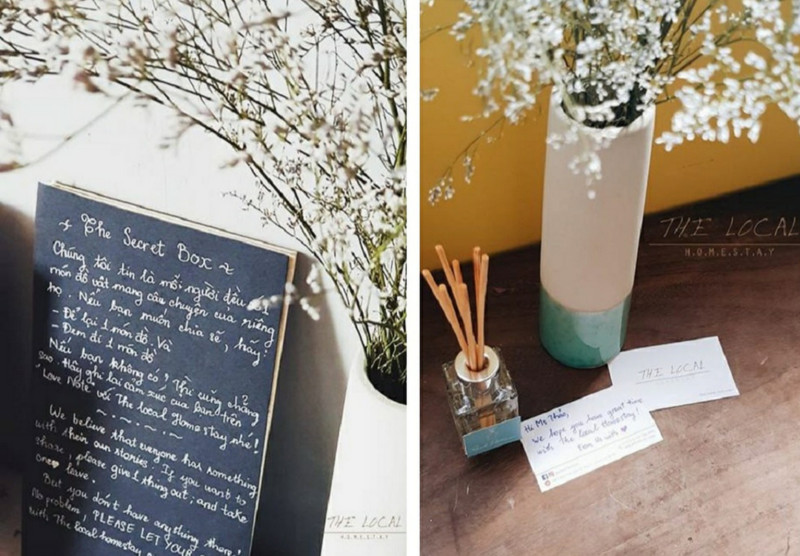 The Secret Box
Chúng tôi tin là mỗi người đều có 1
món đồ vật mang câu chuyện của riêng
họ. Nếu bạn muốn chia sẻ, hãy:
- Để lại 1 món đồ. Và
- Đem đi 1 món đồ
Nếu bạn không có, Thì cũng chẳng
sao. Hãy ghi lại cảm xúc của bạn trên
"Love Note" với The local Homestay nhé!
We believe that everyone has something
with their own stories. If you want to
share, please give 1 thing out, and take
one leave.
But you don't have anything there,
No problem, PLEASE LET YOUR
with The local homestay
THE LOCAL
HOMESTAY
THE LOCAL
H.O.M.E.S.T.A.Y
THE LOCAL
Hi Ms Thảo,
We hope you have great time
with The local Homestay!